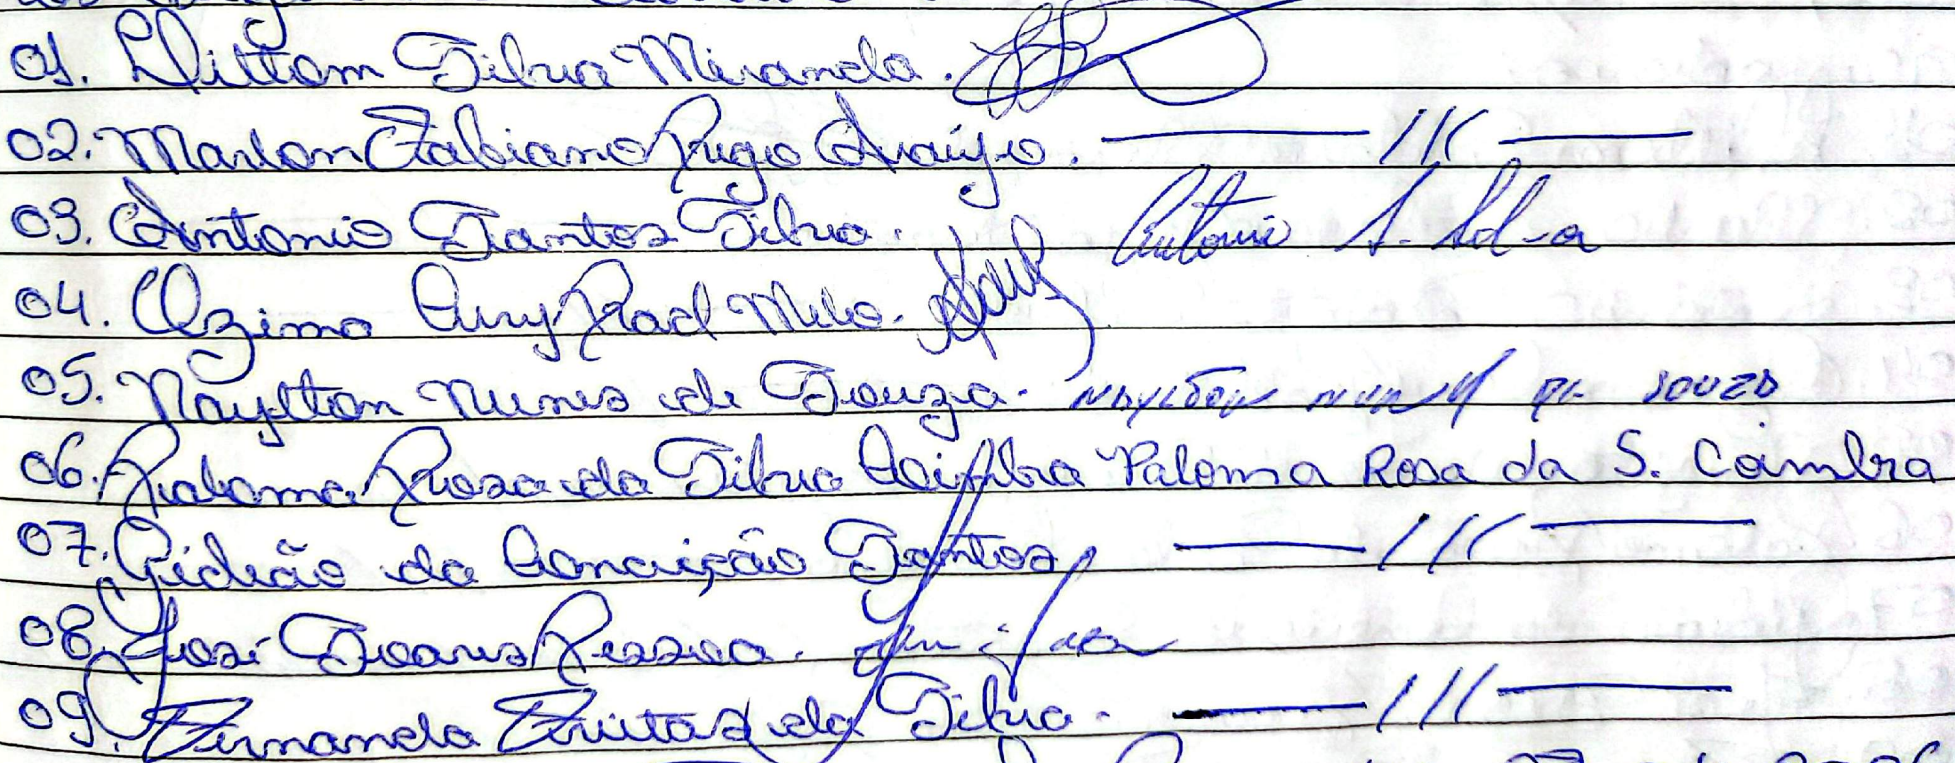 01. Dittom Silva Miranda.
02. Marlon Fabiano Rugo Araújo. ——— /// ———
03. Antonio Santos Silva. Antonio S. Silva
04. Ozima Cury Rad Melo.
05. Naylton Nunes de Souza. Naylton Nunes de Souza
06. Paloma Rosa da Silva Coimbra Paloma Rosa da S. Coimbra
07. Gideão da Conceição Santos ——— /// ———
08. José Soares Pessoa.
09. Fernanda Freitas da Silva. ——— /// ———